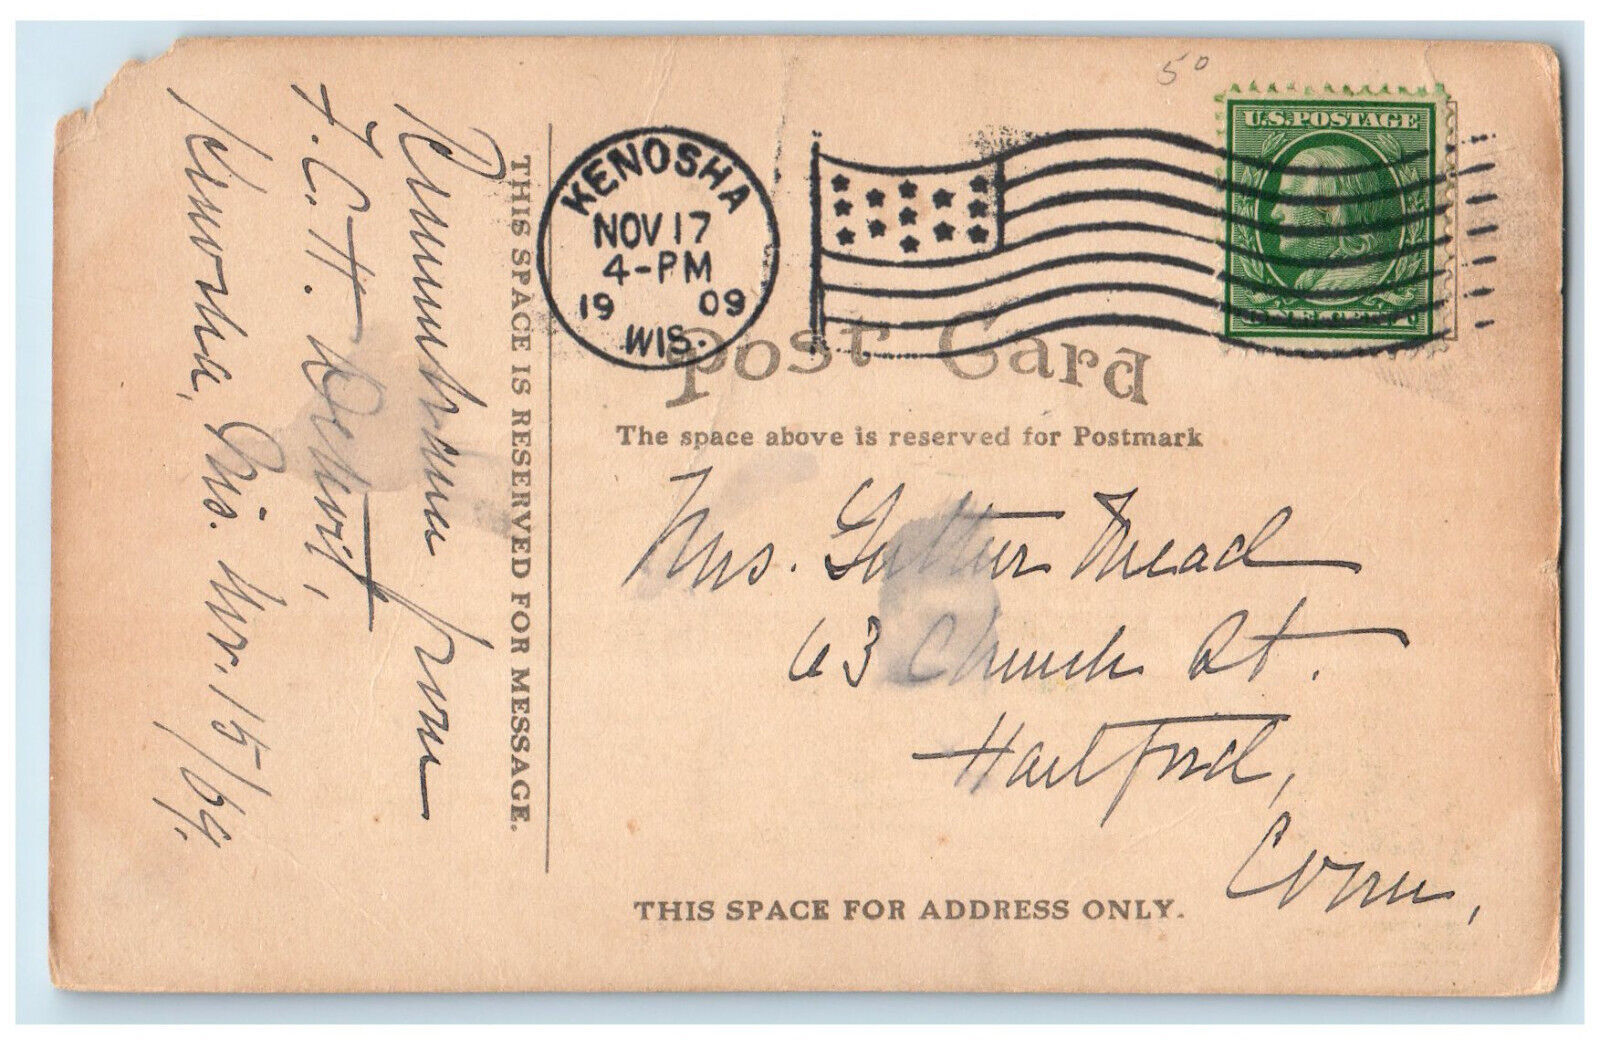 Remembrance from
F. C. H.
Kenosha, Wis. Nov. 15/09.
THIS SPACE IS RESERVED FOR MESSAGE.
KENOSHA
NOV 17
4-PM
19 09
WIS.
50
U.S. POSTAGE
Post Card
The space above is reserved for Postmark
Mrs. Mead
63 Church St.
Hartford,
Conn,
THIS SPACE FOR ADDRESS ONLY.